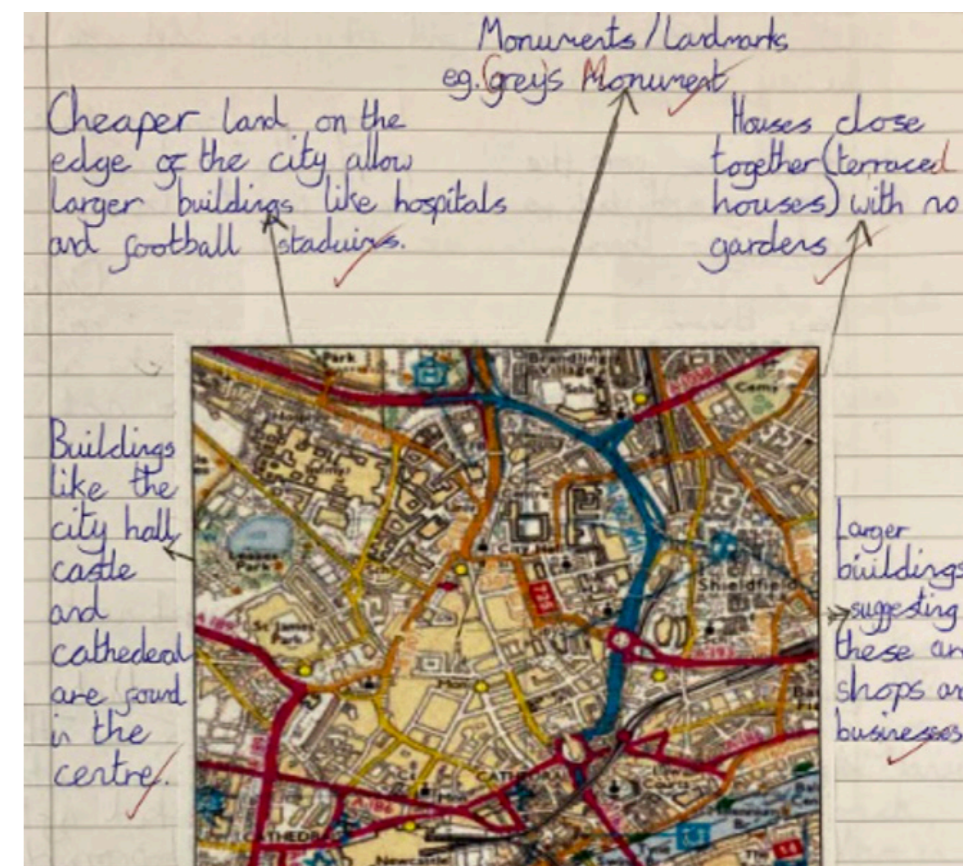 Monuments/Landmarks
eg.(grey)s Monument
Cheaper land on the
edge of the city allow
larger buildings like hospitals
and football staduims.
Houses close
together(terraced
houses) with no
gardens
Buildings
like the
city hall,
castle
and
cathederal
are found
in the
centre.
Larger
buildings
suggesting
these are
shops an
businesses
Park
Brandling
Village
Sch
A 1058
Cemy
Leazes
Park
City Hall
725
Shieldfield
St James
Park
A 189
A 193
Mon
CATHEDRAL
Law
Courts
A 186
CATHEDRAL
Newcastle
Tyne